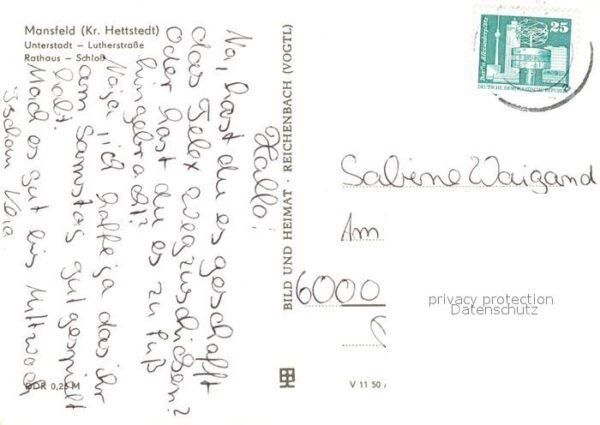 Mansfeld (Kr. Hettstedt)
Unterstadt – Lutherstraße
Rathaus – Schloß
Hallo!
Na, hast du es geschafft
das Telex wegzuschicken?
Oder hast du es zu Fuß
hingebracht?
Naja, ich hoffe ja das ihr
am Samstag gut gespielt
habt.
Mach es gut bis Mittwoch
Tschau
BILD UND HEIMAT REICHENBACH (VOGTL)
25
Berlin, Alexanderplatz
DEUTSCHE DEMOKRATISCHE REPUBLIK
Sabine Waigand
Am
6000
privacy protection
Datenschutz
DDR 0,25 M
V 11 50